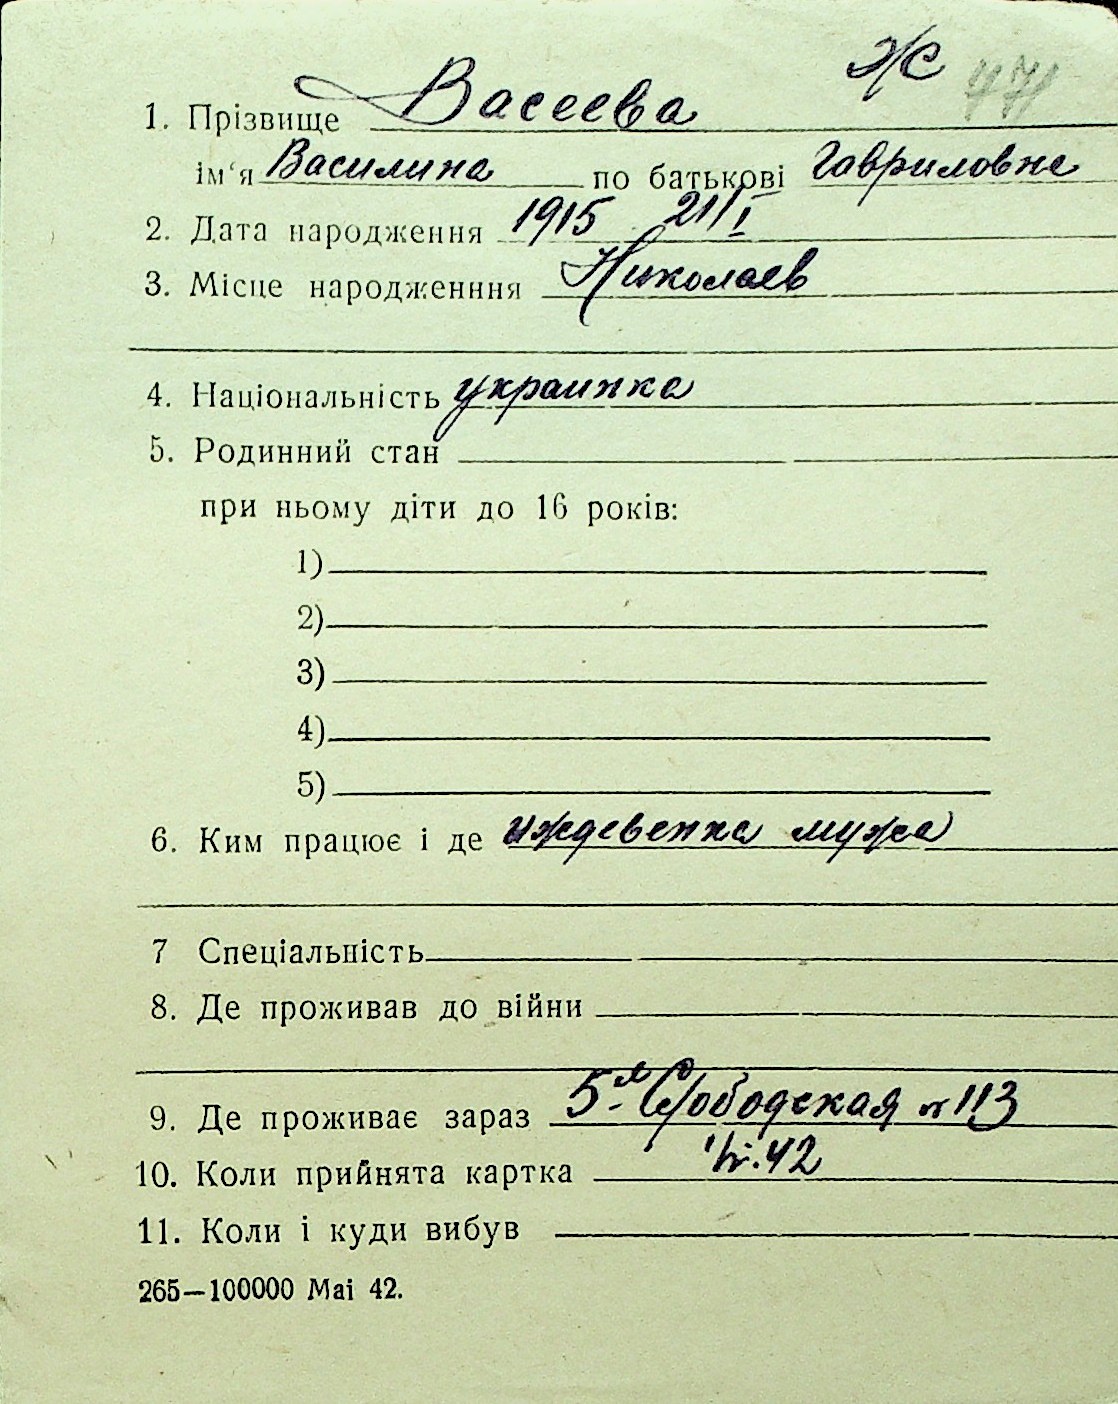 Ж
1. Прізвище Васеева
ім‘я Василина по батькові Гавриловна
2. Дата народження 1915 21/I
3. Місце народженння Николаев
4. Національність украинка
5. Родинний стан
при ньому діти до 16 років:
1)
2)
3)
4)
5)
6. Ким працює і де иждевенка мужа
7 Спеціальність
8. Де проживав до війни
9. Де проживає зараз 5-я Слободская № 113
10. Коли прийнята картка 42
11. Коли і куди вибув
265—100000 Маі 42.